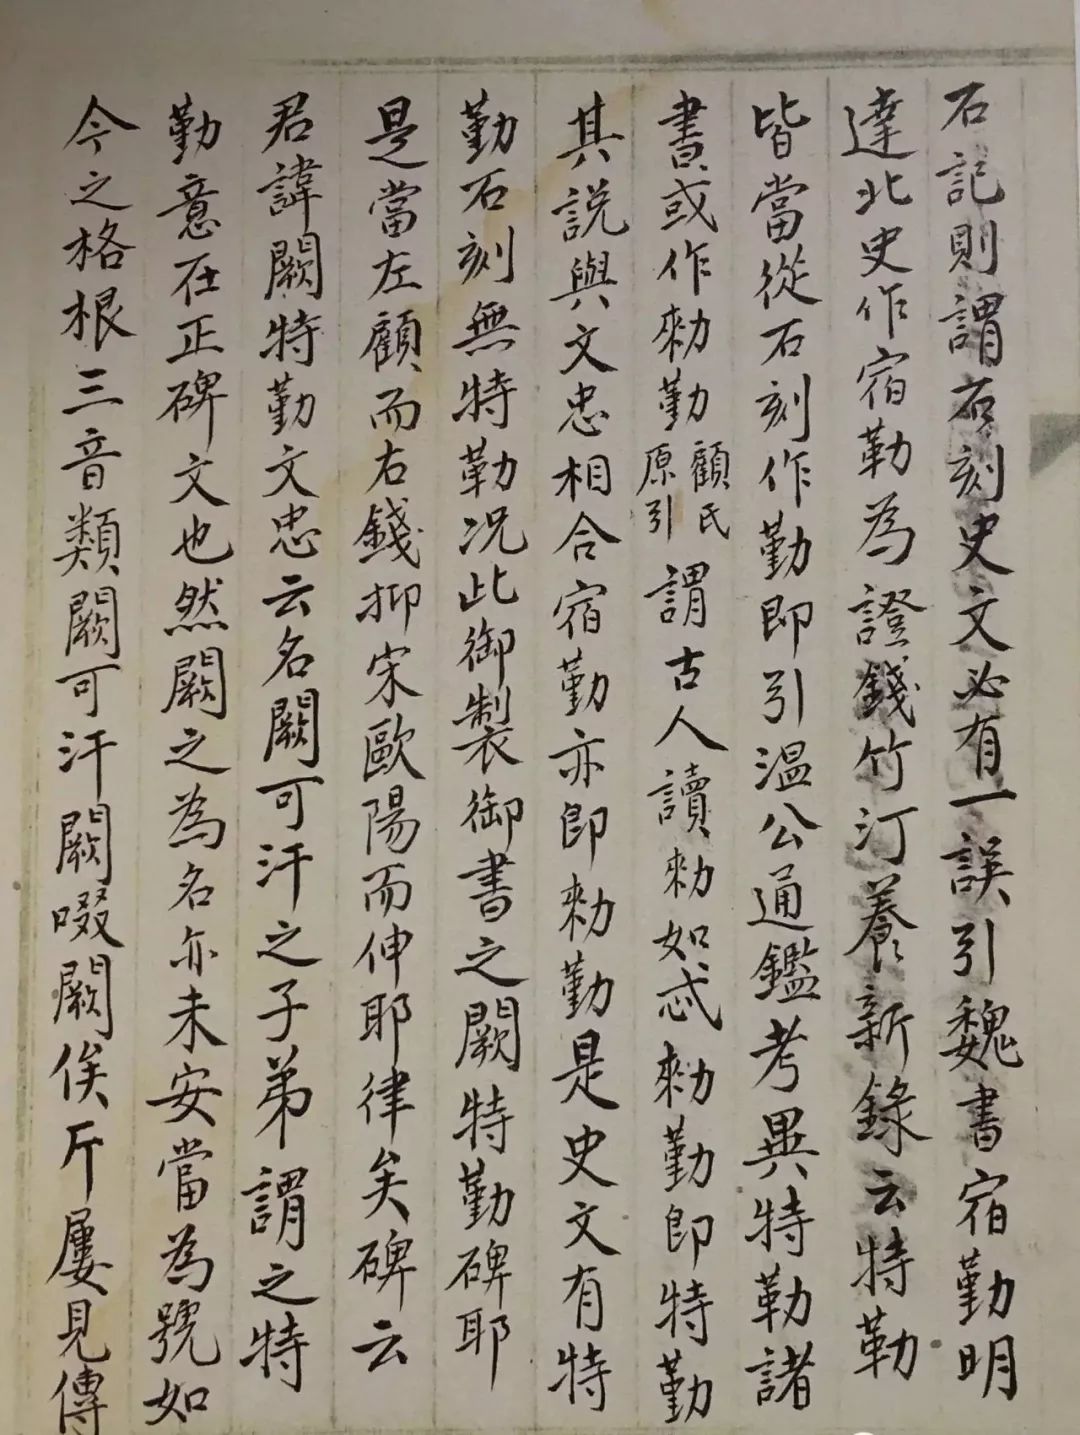 石記則謂石刻史文必有一誤引魏書宿勤明
達北史作宿勒為證錢竹汀養新錄云特勒
皆當從石刻作勤即引溫公通鑑考異特勒諸
書或作勑勤顧氏原引謂古人讀勑如忒勑勤即特勤
其説與文忠相合宿勤亦即勑勤是史文有特
勤石刻無特勒况此御製御書之闕特勤碑耶
是當左顧而右錢抑宋歐陽而伸耶律矣碑云
君諱闕特勤文忠云名闕可汗之子弟謂之特
勤意在正碑文也然闕之為名亦未安當為號如
今之格根三音類闕可汗闕啜闕俟斤屢見傳